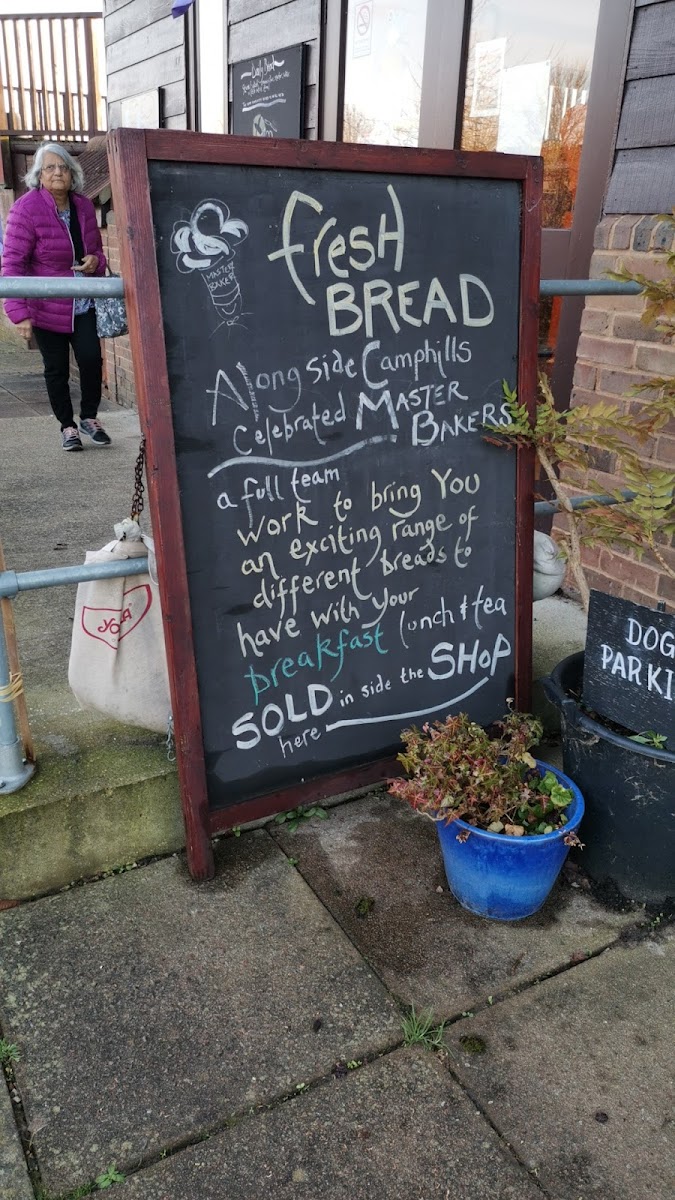 fresh
BREAD
MASTER
BAKER
Along side Camphills
Celebrated MASTER
BAKERS
a full team
work to bring You
an exciting range of
different breads to
have with your
breakfast lunch & tea
SOLD in side the SHOP
here
DOG
PARKI